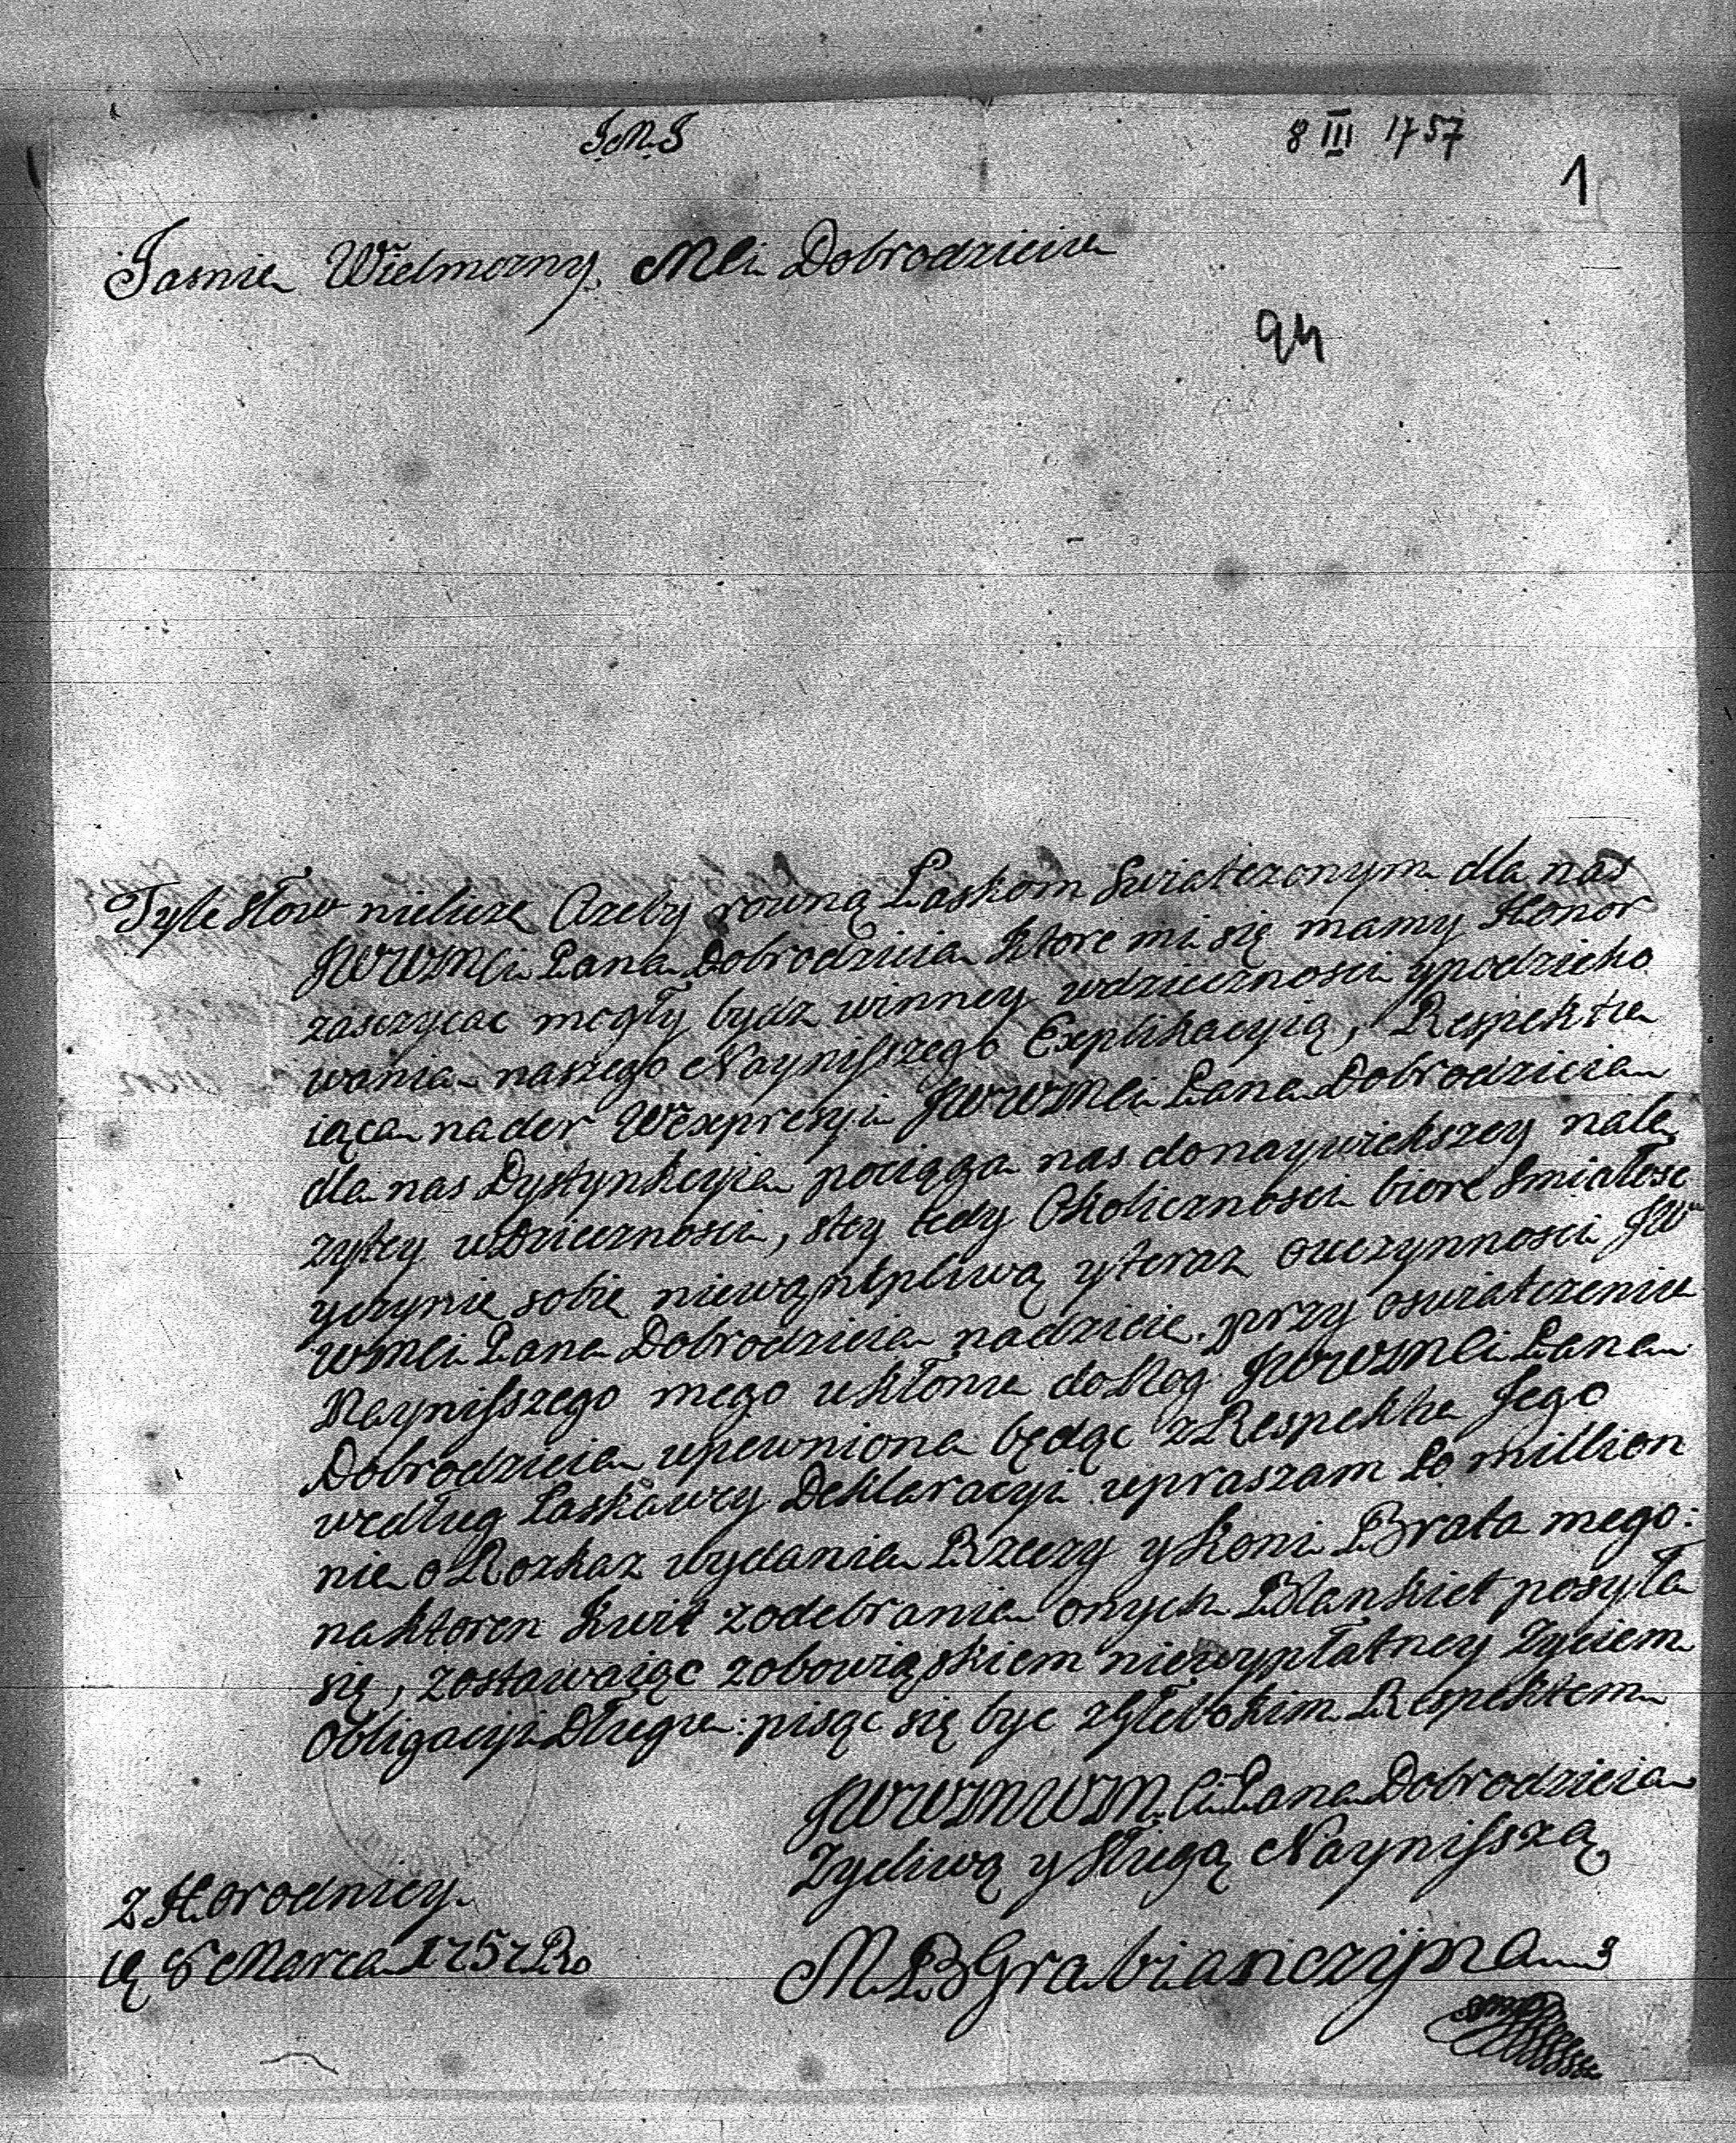 J.M.J
8 III 1757
1
Jasnie Wielmozny Mci Dobrodzieiu
94
Tyle słow nielicze Azeby rowną Łaskom swiatczonym dla nas
JWWMCi Pana Dobrodzieia ktore mi się mamy Honor
zasczycac mogły bydz winney wdziecznosci ypodzieko
wania naszego Nayniſszego Explikacyią, Respektu
iąca nader Wexpresyi JWWMCi Pana Dobrodzieia
dla nas Dystynkcyia pociąga nas donaywiekszey nale
zytey wdziecznosci, stey tedy Okolicznosci biorę smiałosc
yczynie sobie niewąntpliwą yteraz ouczynnosci JW
WMCi Pana Dobrodzieia nadzieie, przy oswiatczeniu
Nayniſszego mego ukłonu do Nog JWWMCi Pana
Dobrodzieia upewniona będąc z Respektu Jego
według Łaskawey Deklaracyi upraszam Po million
nie o Rozkaz wydania Rzeczy y Koni Brata mego:
naktoren kwit zodebrania onych Blankiet posyła
się, zostawaiąc zobowiąskiem niewypłatney Zyciem
Obligacyi Długu: pisąc się byc zGłebokim Respektem
JWWMWM Ci Pana Dobrodzieia
Zycliwą y Sługą Nayniſszą
z Horodnicy
d 8 Marca 1757 Ro
M.P.B Grabianczyna